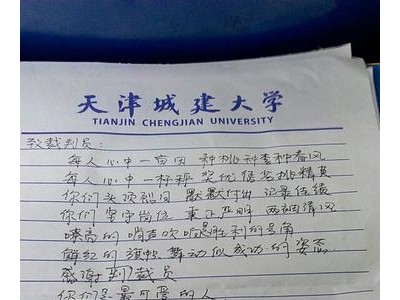 天津城建大学
TIANJIN CHENGJIAN UNIVERSITY
致裁判员：
每人心中一亩田 种桃种李种春风
每人心中一杆秤 奖优惩劣挑精英
你们头顶烈日 默默付出 记录佳绩
你们坚守岗位 重正严明 两袖清风
嘹亮的哨声吹响胜利的号角
鲜红的旗帜舞动似成功的姿态
感谢到裁员
你们是最可爱的人